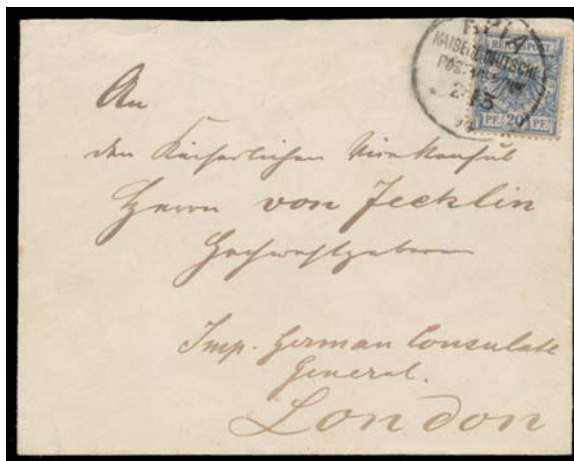 APIA
KAISERL. DEUTSCHE
POSTAGENTUR
2 3
REICHSPOST
PF. 20 PF.
An
den Kaiserlichen Vice Konsul
Herrn von Jecklin
Hochwohlgeboren
Imp. German Consulate
General.
London